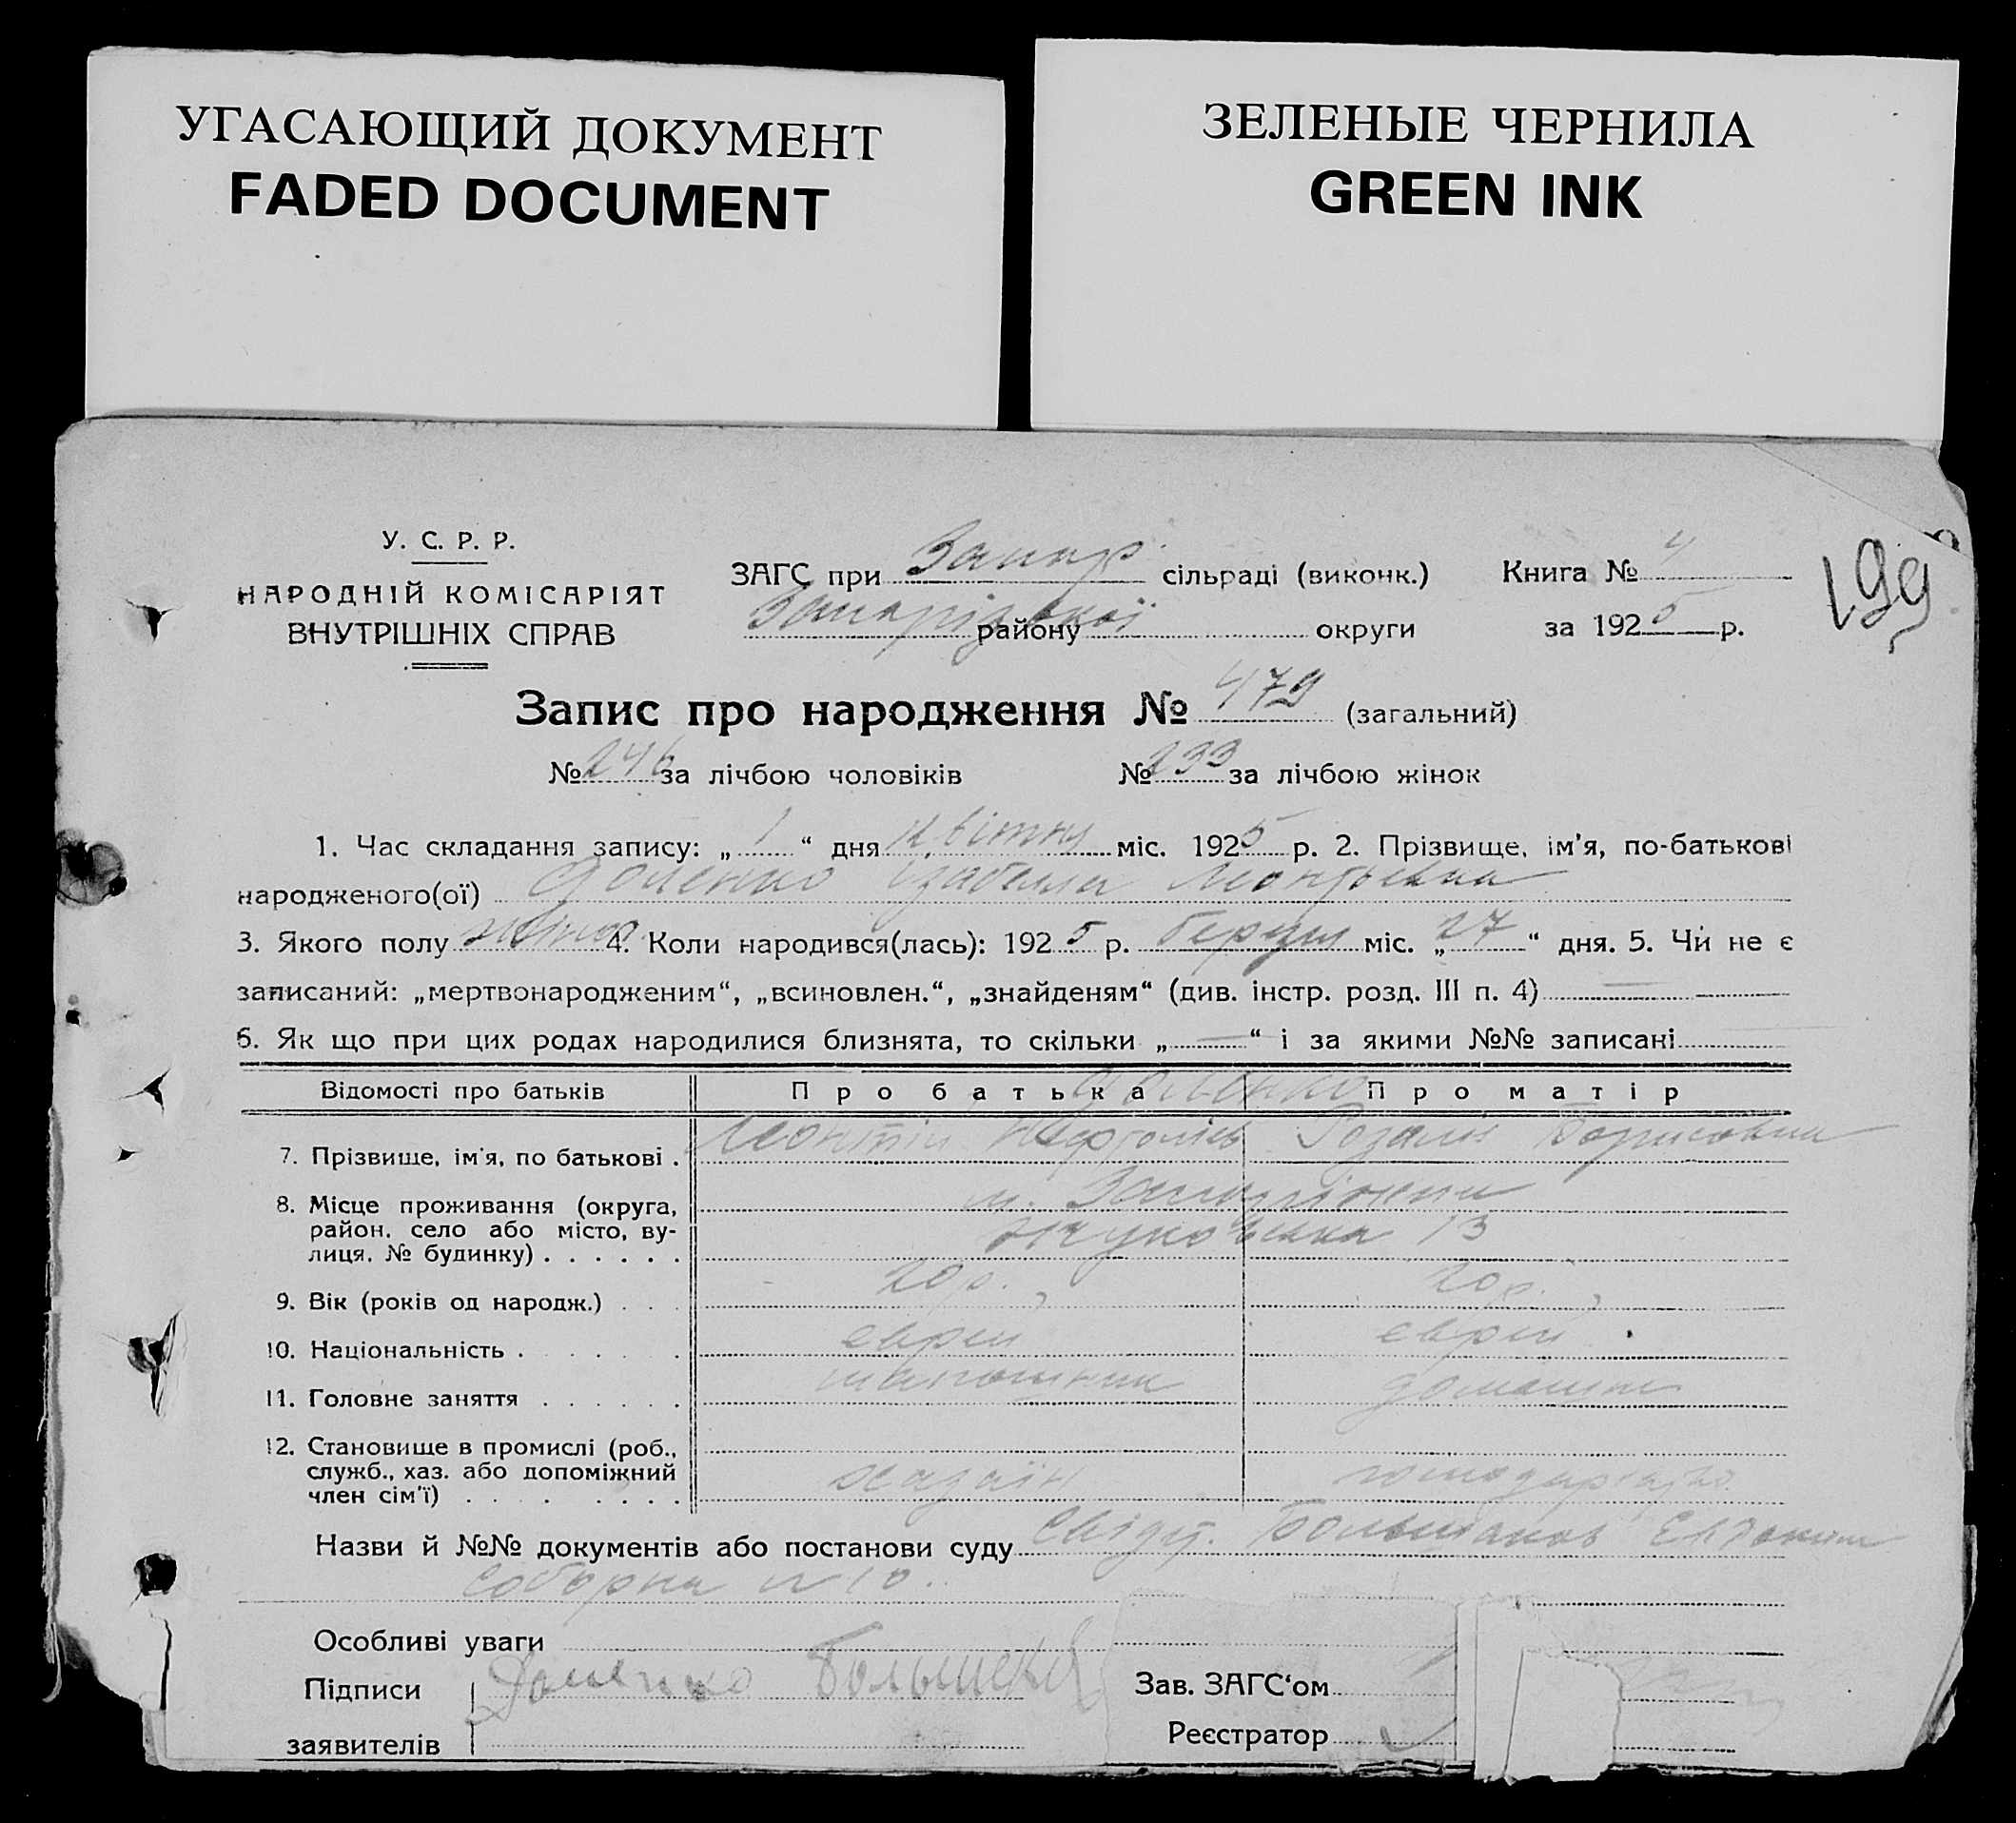 УГАСАЮЩИЙ ДОКУМЕНТ
FADED DOCUMENT
ЗЕЛЕНЫЕ ЧЕРНИЛА
GREEN INK
У. С. Р. Р.
НАРОДНІЙ КОМІСАРІЯТ
ВНУТРІШНІХ СПРАВ
ЗАГС при Запор. сільраді (виконк.)
Запорізької району округи
Книга № 4
за 1925 р.
199
Запис про народження № 479 (загальний)
№ 246 за лічбою чоловіків № 233 за лічбою жінок
1. Час складання запису: „ 1 “ дня квітня міс. 1925 р. 2. Прізвище, ім'я, по-батькові
народженого(ої) Доленко Ізабелла Леонтьевна
3. Якого полу жіноч. 4. Коли народився(лась): 1925 р. березня міс. „ 27 “ дня. 5. Чи не є
записаний: „мертвонародженим“, „всиновлен.“, „знайденям“ (див. інстр. розд. III п. 4) —
6. Як що при цих родах народилися близнята, то скільки „ — “ і за якими №№ записані
Відомості про батьків Про батька Про матір
Доленко
7. Прізвище, ім'я, по батькові . Леонтій Розалія Борисовна
8. Місце проживання (округа, м. Запоріжжя
район, село або місто, ву-
лиця, № будинку) . . . . . . Жуковська 13
9. Вік (років од народж.) . . . 20 р. 20 р.
10. Національність . . . . . . єврей єврей
11. Головне заняття . . . . . . шапошник домашнє
12. Становище в промислі (роб.,
служб., хаз. або допоміжний
член сім'ї) . . . . . . . . хазяїн господарство
Назви й №№ документів або постанови суду Свідт. Большаков Евдоким
Соборна № 10.
Особливі уваги
Підписи Доленко Зав. ЗАГС'ом
заявителів Реєстратор